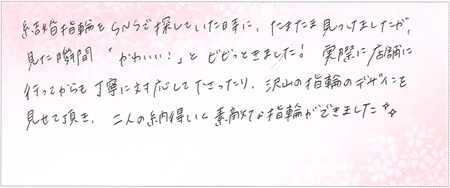 結婚指輪をSNSで探していた時に、たまたま見つけましたが、
見た瞬間「かわいい！」とビビっときました！実際に店舗に
行ってからも丁寧に対応して下さったり、沢山の指輪のデザインを
見せて頂き、二人の納得いく素敵な指輪ができました